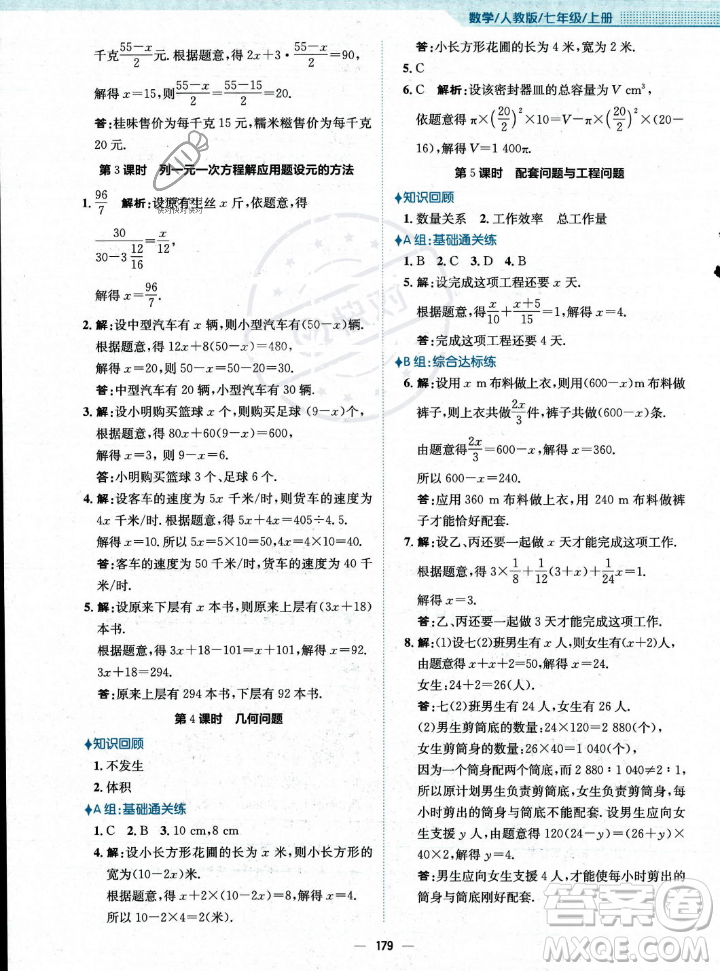 数学/人教版/七年级/上册
千克(55-x)/2元. 根据题意,得2x+4×(55-x)/2=90,
解得x=15,则(55-x)/2=(55-15)/2=20.
答:桂味售价为每千克15元,糯米糍售价为每千克
20元.
第3课时 列一元一次方程解应用题设元的方法
1. 96/7 解析:设原有生丝x斤,依题意,得
30/(30-3 12/16)=x/12,
解得x=96/7.
2. 解:设中型汽车有x辆,则小型汽车有(50-x)辆.
根据题意,得12x+8(50-x)=480,
解得x=20.
答:中型汽车有20辆,小型汽车有30辆.
3. 解:设小明购买篮球x个,则购买足球(9-x)个.
根据题意,得80x+60(9-x)=600,
解得x=3.
答:小明购买篮球3个、足球6个.
4. 解:设客车的速度为5x千米/时,则货车的速度为
4x千米/时.根据题意,得5x+4x=405÷4.5.
解得x=10.所以5x=5×10=50,4x=4×10=40.
答:客车的速度为50千米/时,货车的速度为40千
米/时.
5. 解:设原来下层有x本书,则原来上层有(3x+18)
本书.
根据题意,得3x+18-101=x+101,解得x=101.
3x+18=294.
答:原来上层有294本书,下层有101本书.
第4课时 几何问题
知识回顾
1. 不发生
2. 体积
A组:基础通关练
1. C 2. B 3. 10 cm,8 cm
4. 解:设小长方形花圃的长为x米,则小长方形花圃的
宽为(10-2x)米.
根据题意,得x+2(10-2x)=8,解得x=4.
所以10-2x=10-2×4=2.
答:小长方形花圃的长为4米,宽为2米.
5. C
6. C 解析:设该密封器皿的总容量为V cm³,
依题意得π×(20/2)²×10=V-π×(20/2)²×(20-16).
解得V=1 400π.
第5课时 配套问题与工程问题
知识回顾
1. 数量关系 2. 工作效率 总工作量
A组:基础通关练
1. B 2. C 3. D 4. B
5. 解:设完成这项工程还要x天.
根据题意,得x/10+(x+5)/15=1,解得x=4.
答:完成这项工程还要4天.
B组:综合达标练
6. 解:设用x m布料做上衣,则用(600-x)m布料做
裤子,则共做上衣2x/3件,裤子(600-x)条.
由题意得2x/3=600-x,解得x=360.
所以600-x=240.
答:应用360 m布料做上衣,用240 m布料做裤
子才能恰好配套.
7. 解:设乙、丙还要一起做x天才能完成任务.
根据题意,得3×1/8+1/12(3+x)+1/16x=1,
解得x=3.
答:乙、丙还要一起做3天才能完成任务.
8. 解:(1)设七(2)班男生有x人,则女生有(x+2)人.
由题意得x+x+2=50,解得x=24.
女生:24+2=26(人).
答:七(2)班有男生24人,女生26人.
(2)男生剪筒底的数量:24×120=2 880(个),
女生剪筒身的数量:26×40=1 040(个),
因为一个筒身配两个筒底,而2 880:1 040≠2:1,
所以原计划男生负责剪筒底,女生负责剪筒身,每小
时剪出的筒身与筒底不能配套.
设男生应向女生支援y人,由题意得120×(24-
y)=(26+y)×40×2,
解得y=4.
答:男生应向女生支援4人时,才能使每小时剪出的
筒身与筒底刚好配套.
179
快对
快对快对快对
答案圈